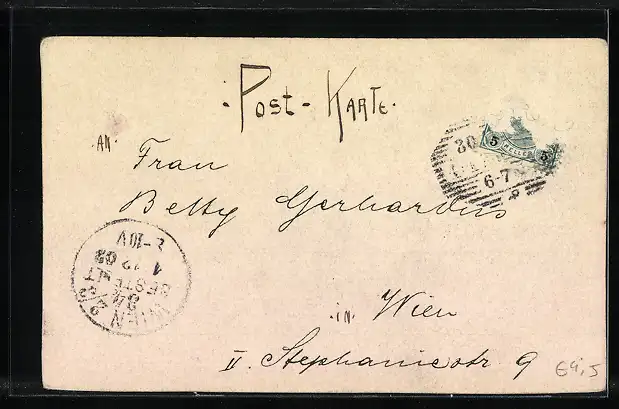 ·Post-Karte·
An.
Frau
Betty Gerhardus
in.
Wien
II. Stephaniestr 9
5 HELLER 5
30
6-7
WIEN 2/2
24
BESTELLT
1 12 02
-10V